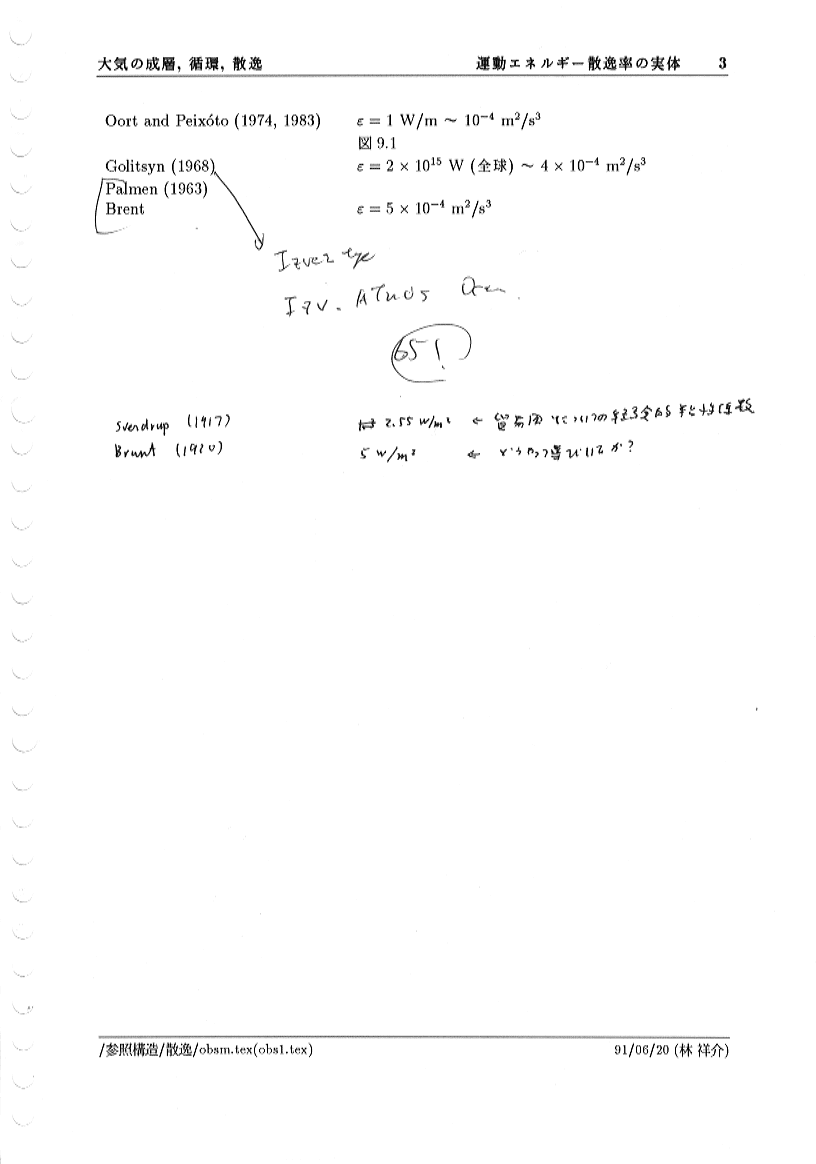 大気の成層, 循環, 散逸 運動エネルギー散逸率の実体 3
Oort and Peixóto (1974, 1983) ε = 1 W/m ∼ 10⁻⁴ m²/s³
図 9.1
Golitsyn (1968) ε = 2 × 10¹⁵ W (全球) ∼ 4 × 10⁻⁴ m²/s³
Palmen (1963)
Brent ε = 5 × 10⁻⁴ m²/s³
Izv. Atmos
65!
Sverdrup (1917) 2.55 W/m² ← 貿易風 についての経験的粘性係数
Brunt (1920) 5 W/m² ← どうやって導びいてか?
/参照構造/散逸/obsm.tex(obs1.tex) 91/06/20 (林 祥介)